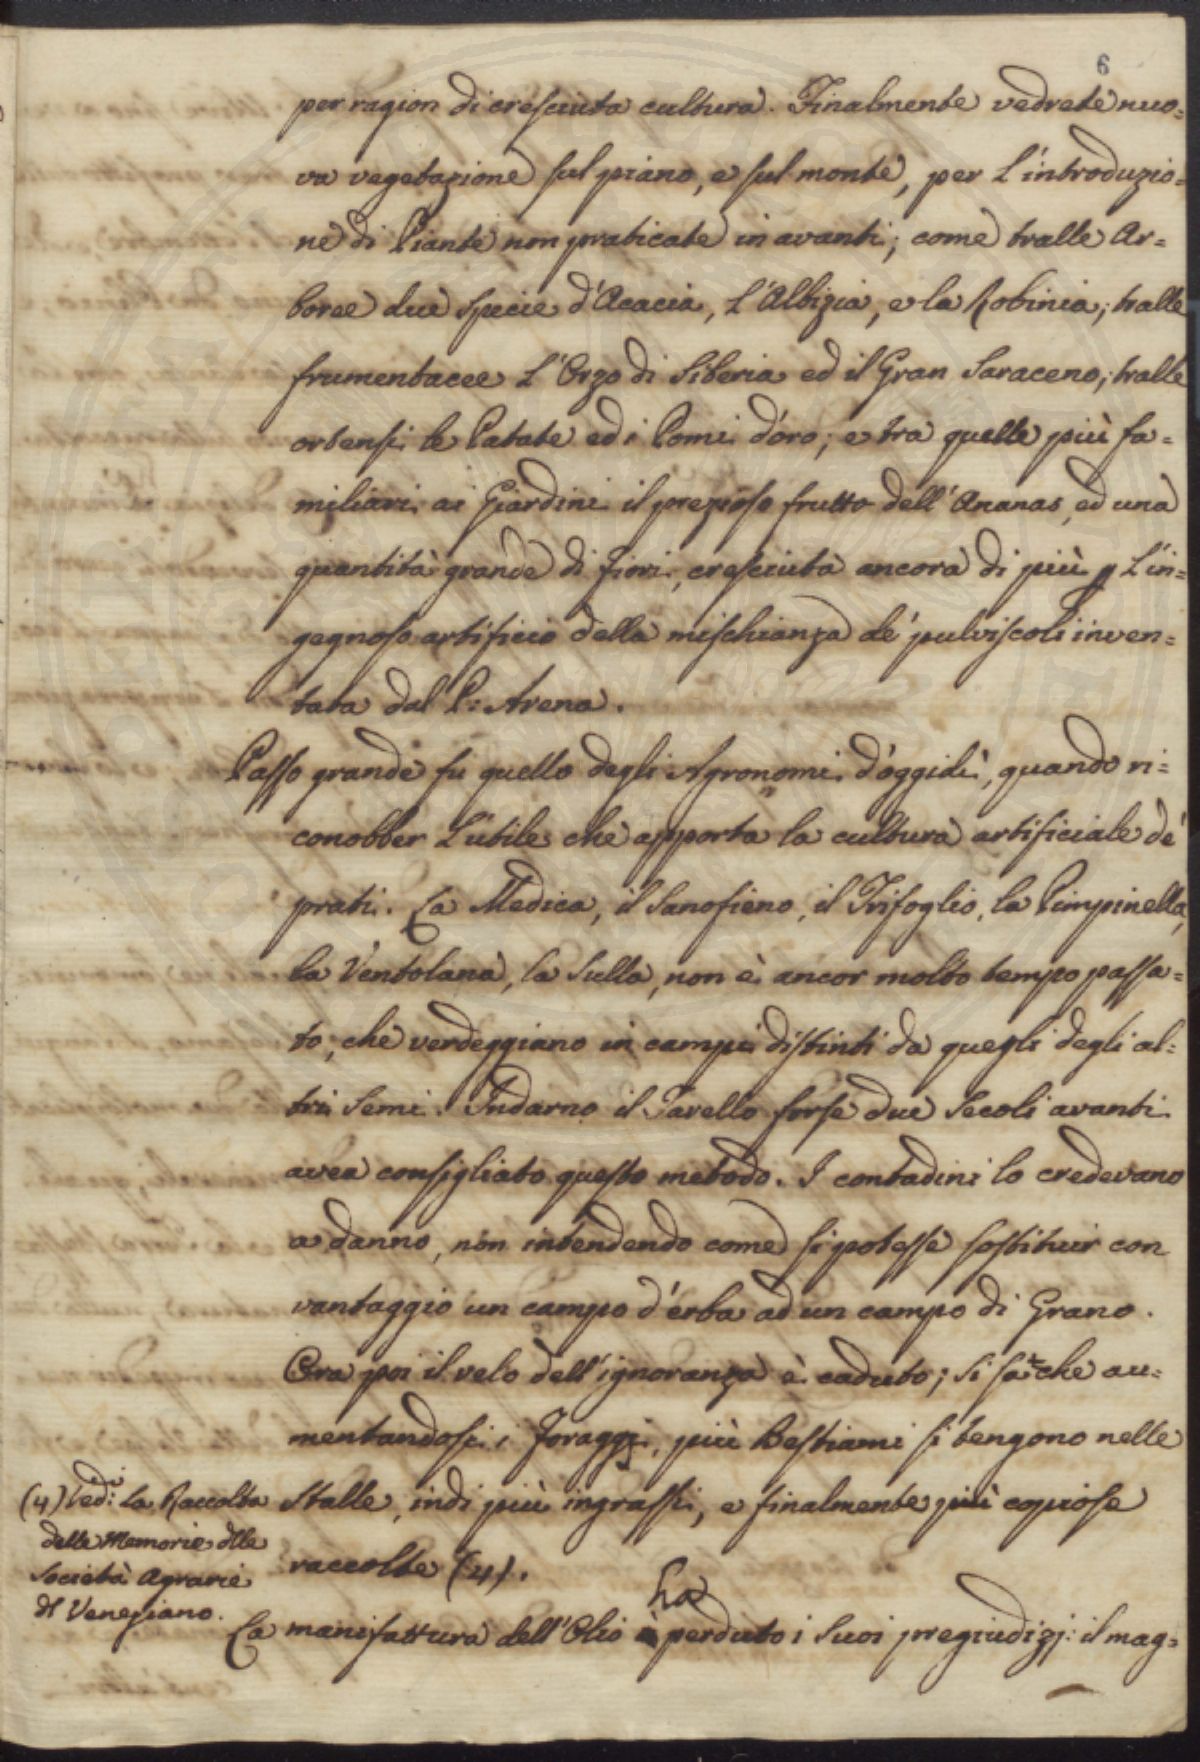 6
per ragion di cresciuta cultura. Finalmente vedrete nuo=
va vegetazione sul piano, e sul monte, per l'introduzio=
ne di Piante non praticate in avanti; come tralle Ar=
boree due specie d'Acacia, l'Albizia, e la Robinia; tralle
frumentacee l'Orzo di Siberia ed il Gran Saraceno; tralle
ortensi le Patate ed i Pomi d'oro; e tra quelle più fa=
miliari ai Giardini il prezioso frutto dell'Ananas, ed una
quantità grande di fiori, cresciuta ancora di più p l'in=
gegnoso artificio della mischianza de' pulviscoli inven=
tata dal P: Arena.
Passo grande fu quello degli Agronomi d'oggidì, quando ri=
conobber l'utile che apporta la cultura artificiale de'
prati. La Medica, il Sanofieno, il Trifoglio, la Pimpinella,
la Ventolana, la Sulla, non è ancor molto tempo passa=
to, che verdeggiano in campi distinti da quegli degli al=
tri semi. Indarno il Tarello forse due Secoli avanti
avea consigliato questo metodo. I contadini lo credevano
a danno, non intendendo come si potesse sostituir con
vantaggio un campo d'erba ad un campo di Grano.
Ora poi il velo dell'ignoranza è caduto; si sa che au=
mentandosi i Foraggi, più Bestiami si tengono nelle
Stalle, indi più ingrassi, e finalmente più copiose
raccolte (4).
(4) Vedi la Raccolta
delle Memorie dlle
Società Agrarie
dl Veneziano.
ha
La manifattura dell'Olio è perduto i suoi pregiudizj: il mag=